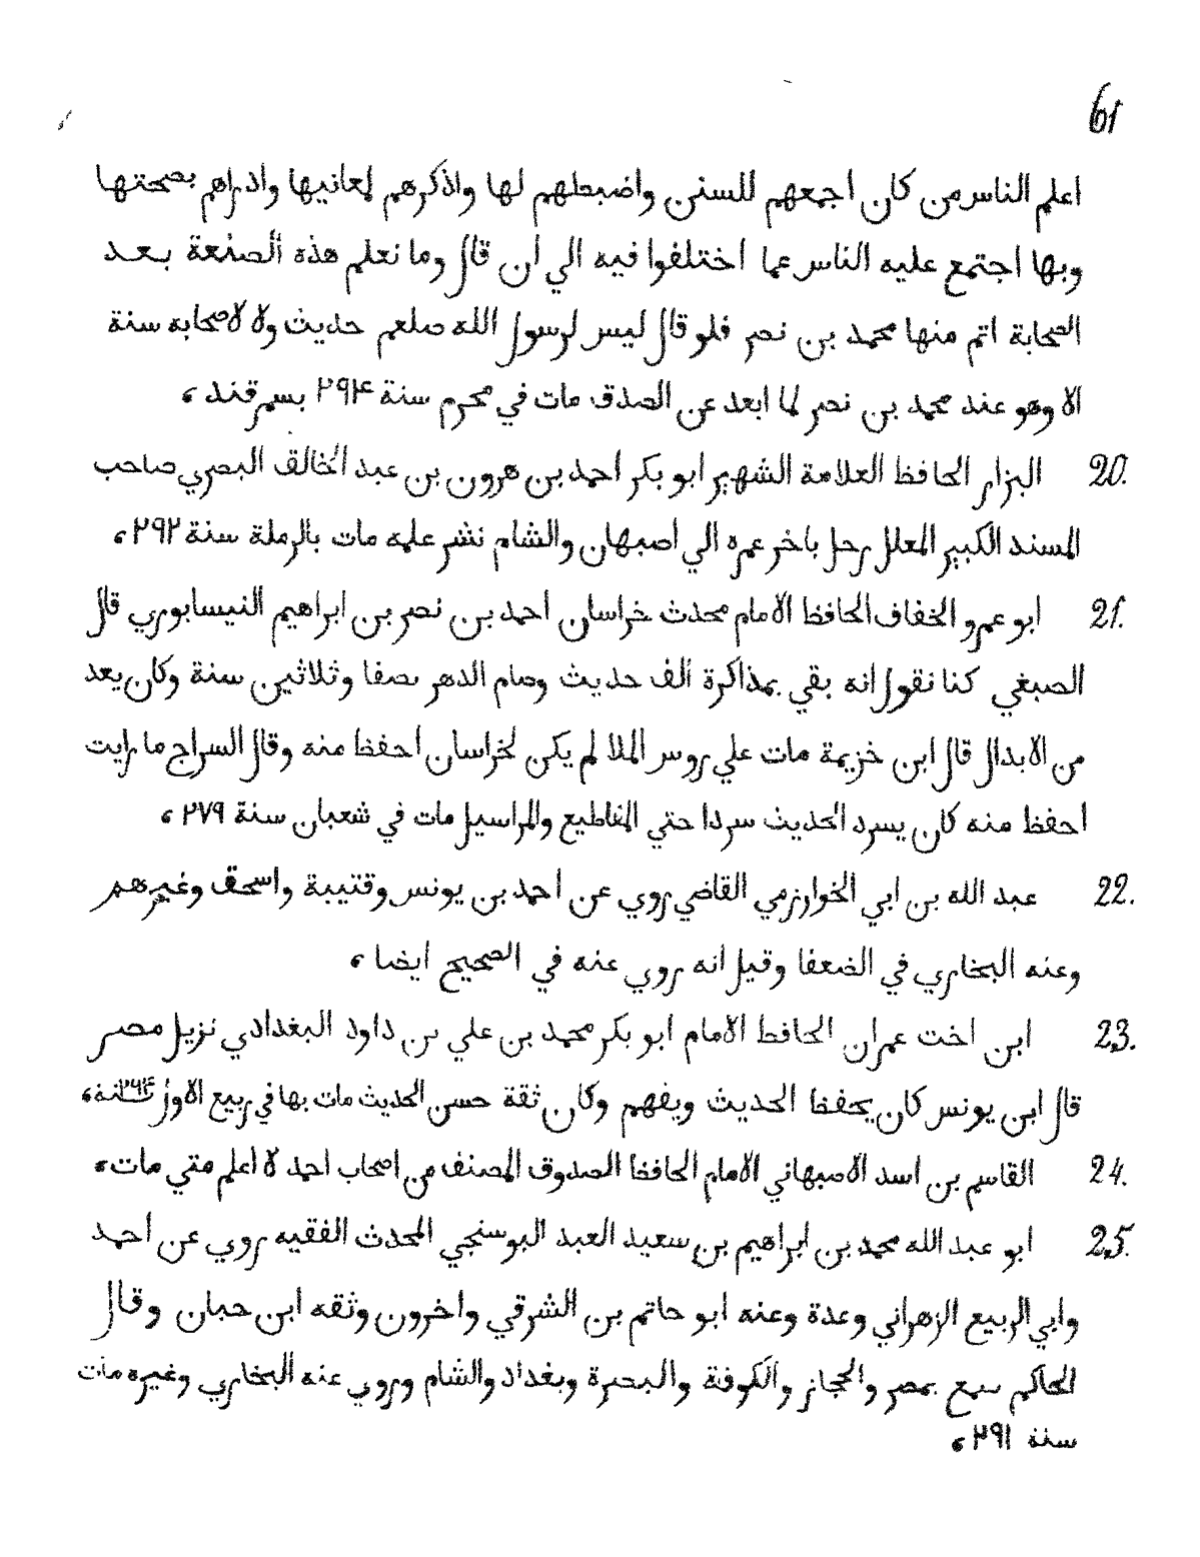 61
اعلم الناس من كان اجمعهم للسنن واضبطهم لها واذكرهم لمعانيها وادراهم بصحتها
وبها اجتمع عليه الناس عما اختلفوا فيه الي ان قال وما نعلم هذه الصنعة بعد
الصحابة اتم منها محمد بن نصر فلو قال ليس لرسول الله صلعم حديث ولا لاصحابه سنة
الا وهو عند محمد بن نصر لما ابعد عن الصدق مات في محرم سنة ٢٩٤ بسمرقند،
20. البزار الحافظ العلامة الشهير ابو بكر احمد بن هرون بن عبد الخالق البصري صاحب
المسند الكبير المعلل رحل باخر عمره الي اصبهان والشام نشر علمه مات بالرملة سنة ٢٩٢،
21. ابو عمرو الخفاف الحافظ الامام محدث خراسان احمد بن نصر بن ابراهيم النيسابوري قال
الصبغي كنا نقول انه بقي بمذاكرة الف حديث وصام الدهر نصفا وثلاثين سنة وكان يعد
من الابدال قال ابن خزيمة مات علي روس الملا لم يكن لخراسان احفظ منه وقال السراج ما رايت
احفظ منه كان يسرد الحديث سردا حتي المقاطيع والمراسيل مات في شعبان سنة ٢٧٩،
22. عبد الله بن ابي الخوارزمي القاضي روي عن احمد بن يونس وقتيبة واسحق وغيرهم
وعنه البخاري في الضعفا وقيل انه روي عنه في الصحيح ايضا،
23. ابن اخت عمران الحافظ الامام ابو بكر محمد بن علي بن داود البغدادي نزيل مصر
قال ابن يونس كان يحفظ الحديث ويفهم وكان ثقة حسن الحديث مات بها في ربيع الاول سنة ٢٦٤،
24. القاسم بن اسد الاصبهاني الامام الحافظ الصدوق المصنف من اصحاب احمد لا اعلم متي مات،
25. ابو عبد الله محمد بن ابراهيم بن سعيد العبد البوسنجي المحدث الفقيه روي عن احمد
وابي الربيع الزهراني وعدة وعنه ابو حاتم بن الشرقي واخرون وثقه ابن حبان وقال
الحاكم سمع بمصر والحجاز والكوفة والبصرة وبغداد والشام وروي عنه البخاري وغيره مات
سنة ٢٩١،